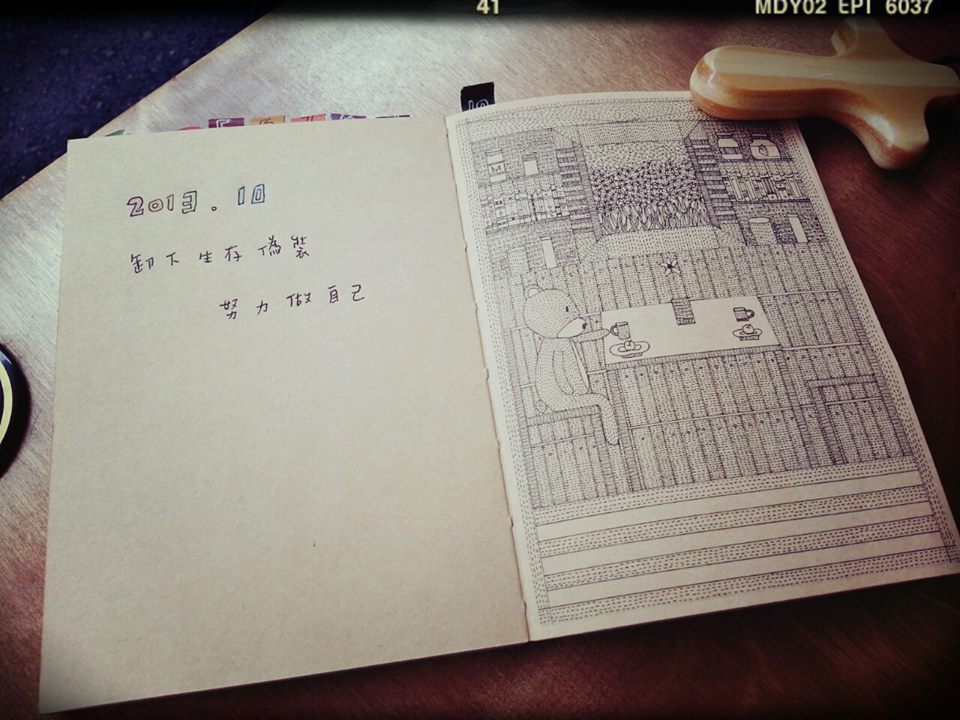 41
MDY02 EPI 6037
10
2013.10
卸下生存偽裝
努力做自己
M